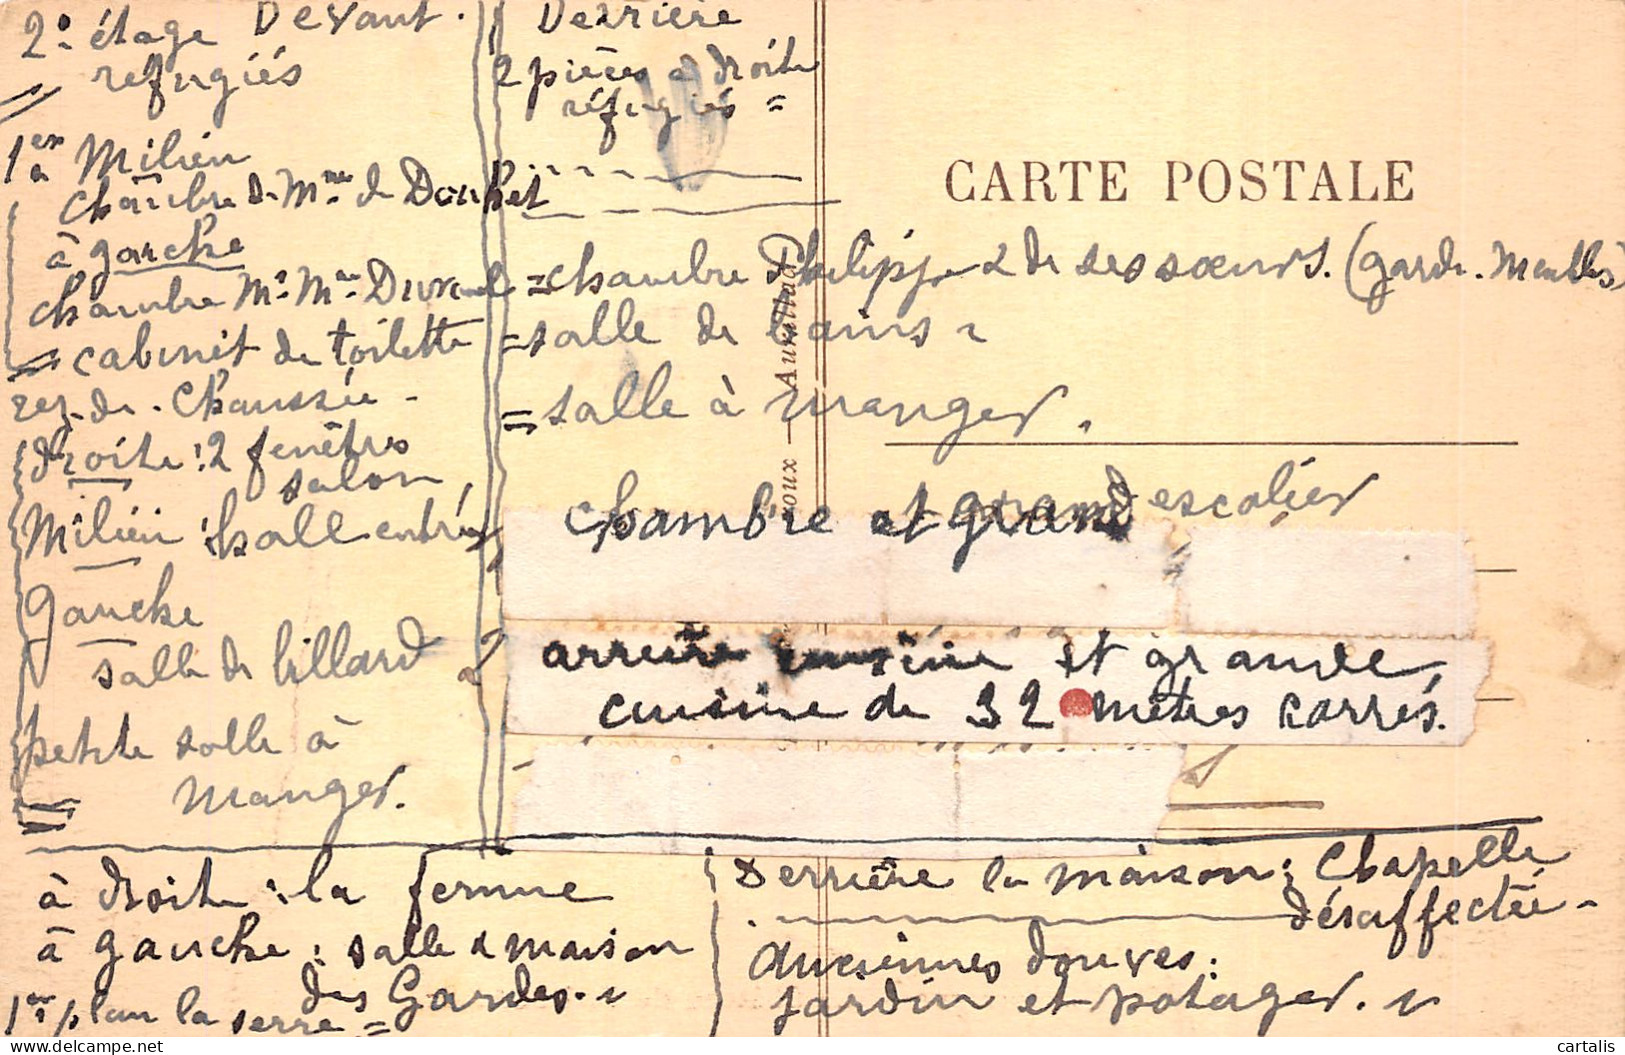 2º étage Devant.
réfugiés
1er à Milieu
chambre de Mme de Douhet
à gauche
chambre Mr Mme
= cabinet de toilette
rez-de-chaussée -
droite : 2 fenêtres
salon
Milieu : hall entrée
Gauche
salle de billard
petite salle à
manger.
Derrière
2 pièces à droite
réfugiés =
= chambre Philippe & de ses sœurs. (garde-Meubles)
= salle de bains
= salle à manger.
chambre et grand escalier
arrière cuisine et grande
cuisine de 32 mètres carrés.
CARTE POSTALE
Aurillac
à droite : la ferme
à gauche : salle & maison
des Gardes.
1er plan la serre =
Derrière la maison : Chapelle
désaffectée -
Anciennes douves :
jardin et potager.
cartalis